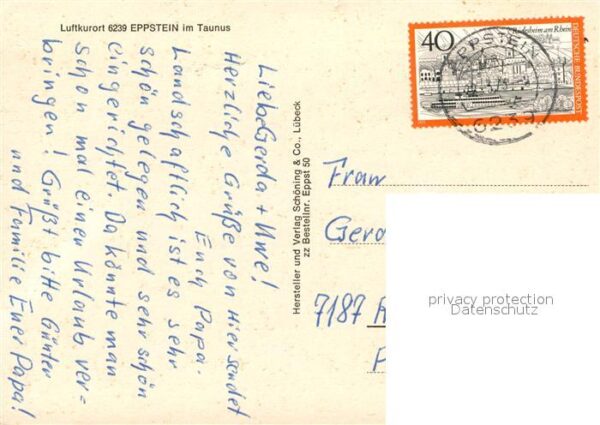 Luftkurort 6239 EPPSTEIN im Taunus
Liebe Gerda + Uwe!
Herzliche Grüße von Hier sendet
Euch Papa.
Landschaftlich ist es sehr
schön gelegen und sehr schön
eingerichtet. Da könnte man
schon mal einen Urlaub ver=
bringen! Grüßt bitte Günter
und Familie Euer Papa!
Hersteller und Verlag Schöning & Co., Lübeck
zz Bestellnr. Eppst 50
40
Rüdesheim am Rhein
DEUTSCHE BUNDESPOST
EPPSTEIN
6239
Frau
Gerd
7187
privacy protection
Datenschutz